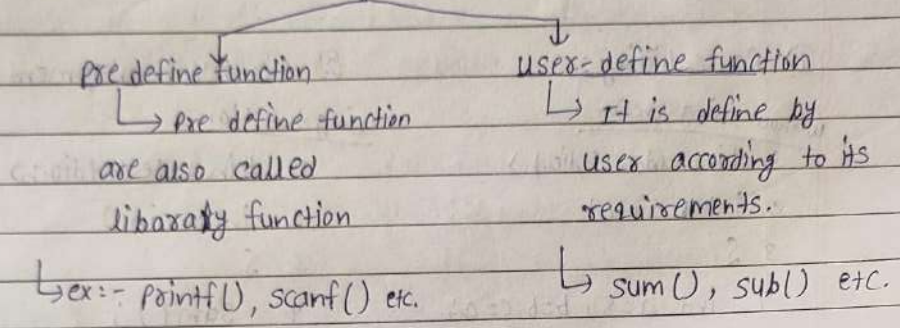 Pre define function
↳ Pre define function
are also called
libararly function
↳ ex:- printf(), scanf() etc.
user-define function
↳ It is define by
user according to its
requirements.
↳ sum(), sub() etc.